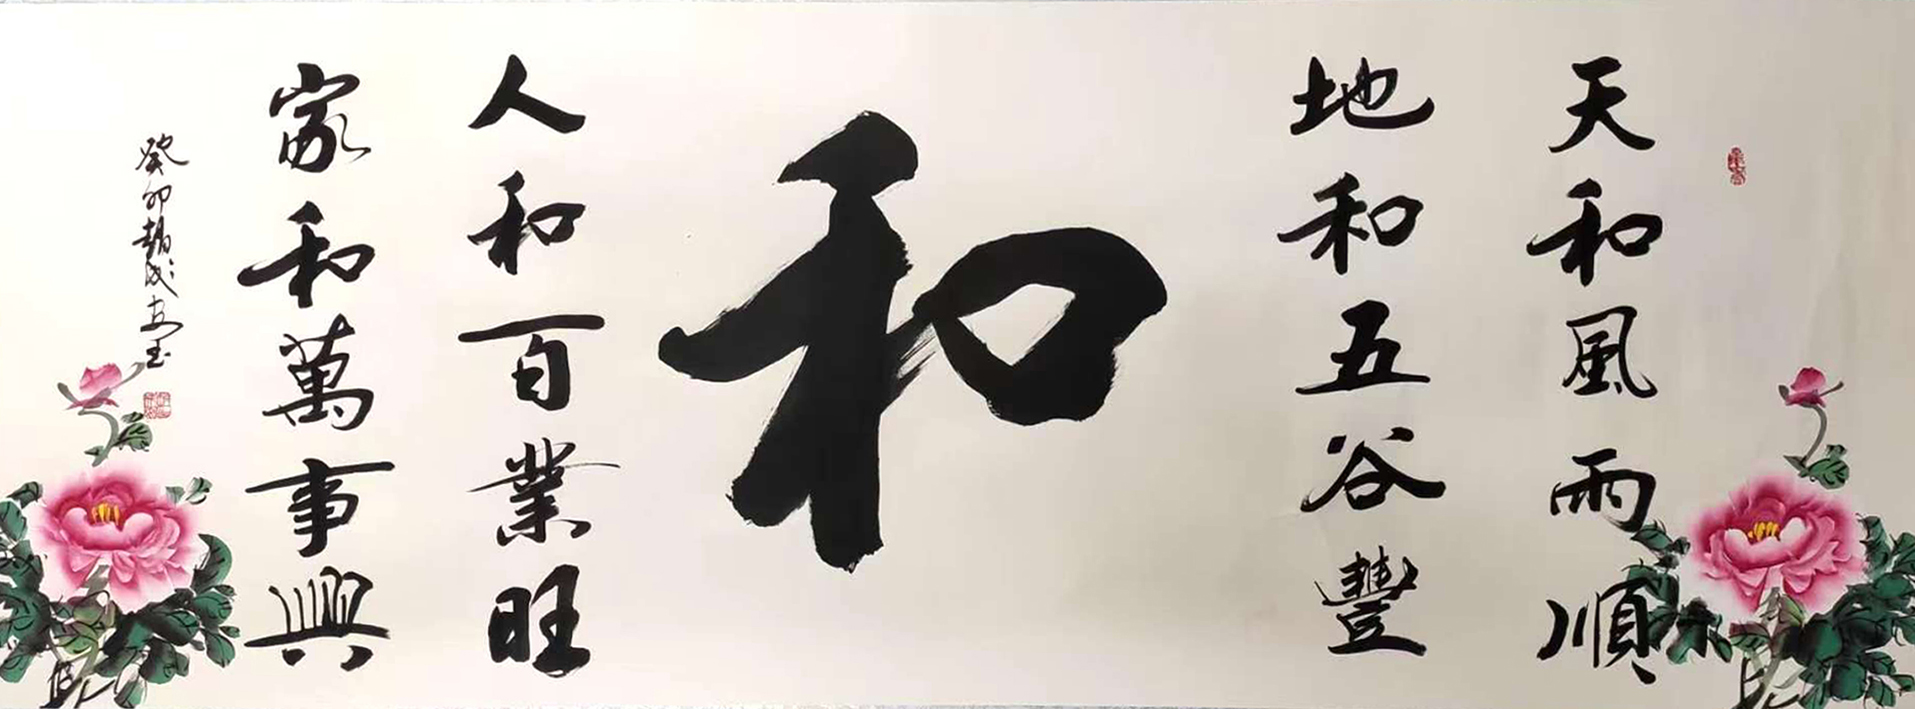 天和風雨順
地和五谷豐
和
人和百業旺
家和萬事興
癸卯趙成玉